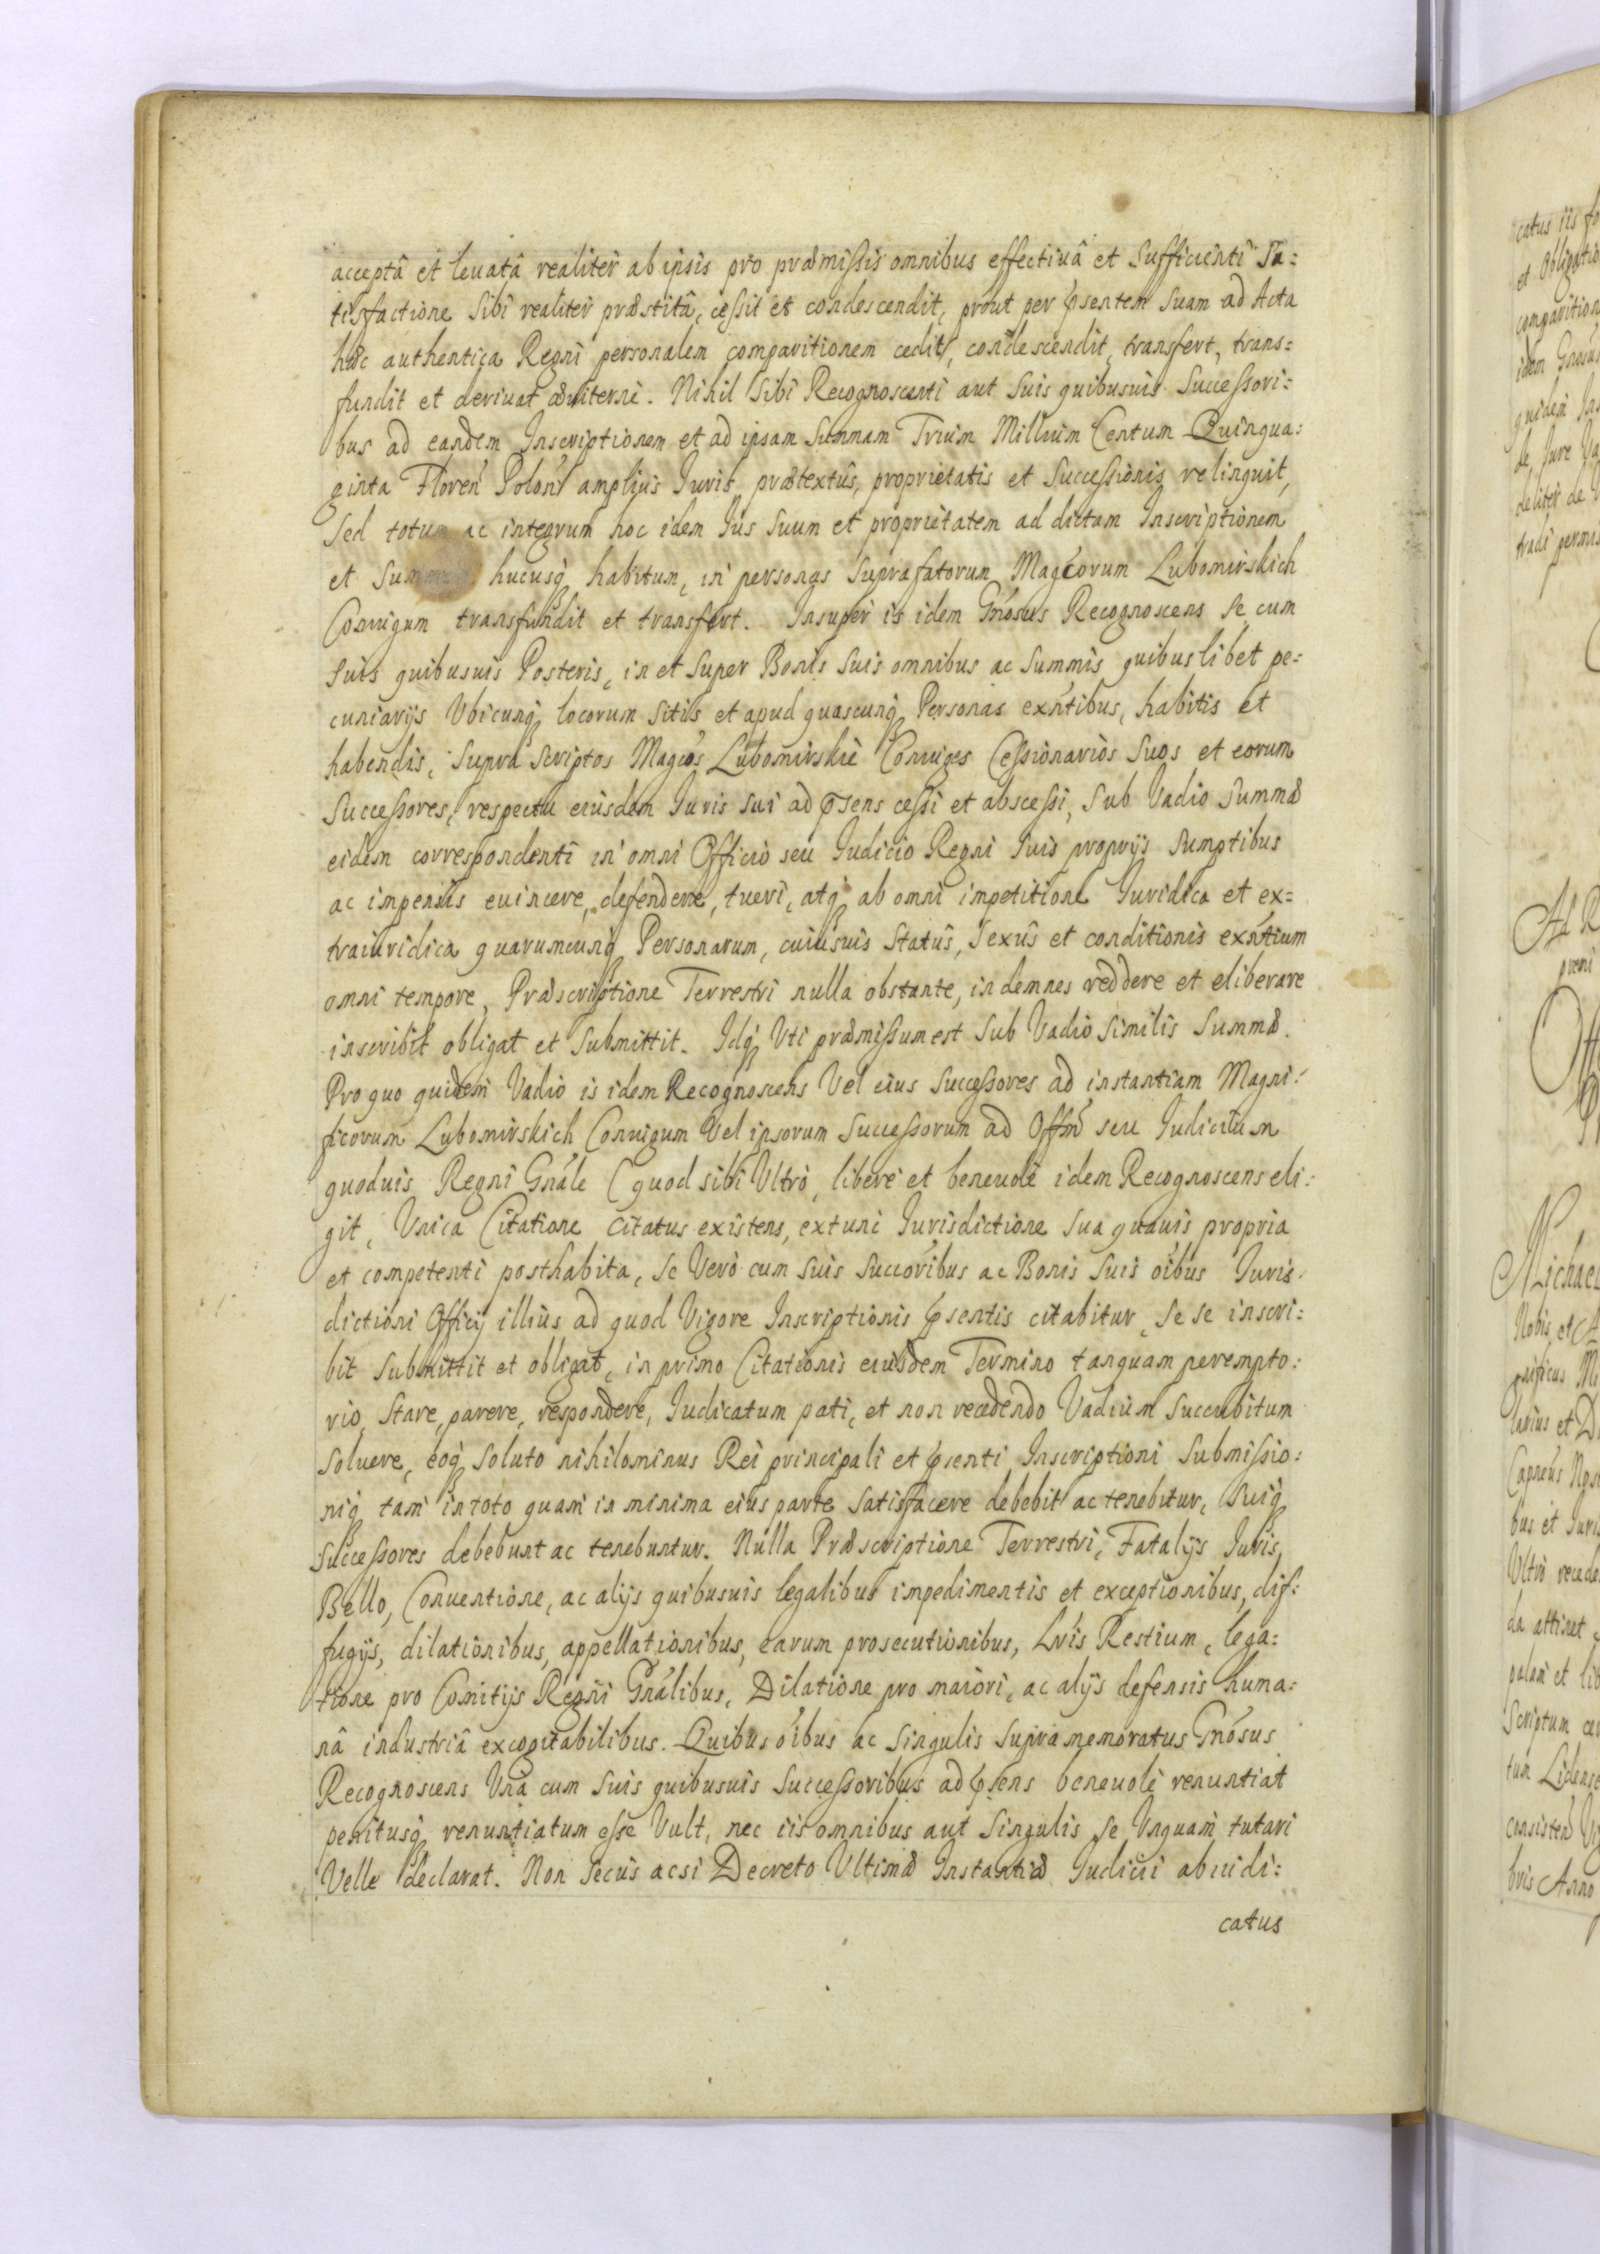 acceptâ et leuatâ realiter ab ipsis pro præmißis omnibus effectiuâ et sufficienti Sa:
tisfactione sibi realiter præstitâ, ceßit et condescendit, prout per p̄sentem suam ad Acta
hæc authentica Regni personalem comparitionem cedit, condescendit, transfert, trans=
fundit et deriuat æuiternè. Nihil sibi Recognoscenti aut suis quibusuis Successori:
bus ad eandem Inscriptionem et ad ipsam Summam Trium Millium Centum Quinqua:
ginta Floren̄ Polon̄ amplius Iuris, prætextûs, proprietatis et Succeßionis relinquit,
Sed totum ac integrum hoc idem Ius Suum et proprietatem ad dictam Inscriptionem
et Summam hucusq̨ habitum, in personas Suprafatorum Mag̃corum Lubomirskich
Coniugum transfundit et transfert. Insuper is idem Gñosus Recognoscens se cum
suis quibusuis Posteris, in et super Bonis Suis omnibus ac Summis quibuslibet pe=
cuniarijs Vbicunq̨ locorum Sitis et apud quascunq̨ Personas exñtibus, habitis et
habendis, Supra Scriptos Mag̃cos Lubomirskie Coniuges Ceßionarios Suos et eorum
Succeßores, respectu eiusdem Iuris Sui ad p̄sens ceßi et absceßi, Sub Vadio Summæ
eidem correspondenti in omni Officio seu Iudicio Regni Suis proprijs Sumptibus
ac impensis euincere, defendere, tueri, atq̨ ab omni impetitione Iuridica et ex=
traiuridica quarumcunq̨ Personarum, cuiusuis Statûs, Sexûs et conditionis exñtium
omni tempore, Præscriptione Terrestri nulla obstante, indemnes reddere et eliberare
inscribit obligat et Submittit. Idq̨ Vti præmißum est Sub Vadio Similis Summæ.
Pro quo quidem Vadio is idem Recognoscens Vel eius Succeßores ad instantiam Magni:
ficorum Lubomirskich Coniugum Vel ipsorum Succeßorum ad Offm̃ seu Iudicium
quoduis Regni Gnãle (quod sibi Vltrò, liberè et beneuolè idem Recognoscens eli:
git, Vnica Citatione citatus existens, extunc Iurisdictione Sua quauis propria
et competenti posthabita, Se Verò cum Suis Succõribus ac Bonis Suis õibus Iuris
dictioni Officij illius ad quod Vigore Inscriptionis p̄sentis citabitur, Se se inscri:
bit Submittit et obligat, in primo Citationis eiusdem Termino tanquam perempto:
rio, Stare, parere, respondere, Iudicatum pati, et non recedendo Vadium Succubitum
Soluere, eoq̨ Soluto nihilominus Rei principali et p̄senti Inscriptioni Submißio:
niq̨ tam in toto quam in minima eius parte Satisfacere debebit ac tenebitur, Suiq̨
Succeßores debebunt ac tenebuntur. Nulla Præscriptione Terrestri, Fatalijs Iuris,
Bello, Conuentione, ac alijs quibusuis legalibus impedimentis et exceptionibus, dif:
fugijs, dilationibus, appellationibus, earum prosecutionibus, Lr̃is Restium, lega:
tione pro Comitijs Regni Gnãlibus, Dilatione pro maiori, ac alijs defensis huma:
nâ industriâ excogitabilibus. Quibus õibus ac Singulis Supra memoratus Gñosus
Recognoscens Vnà cum Suis quibusuis Succeßoribus ad p̄sens beneuolè renuntiat
penitusq̨ renuntiatum eße Vult, nec iis omnibus aut Singulis Se Vnquam tutari
Velle declarat. Non Secus acsi Decreto Vltimæ Instantiæ Iudicii abiudi:
catus